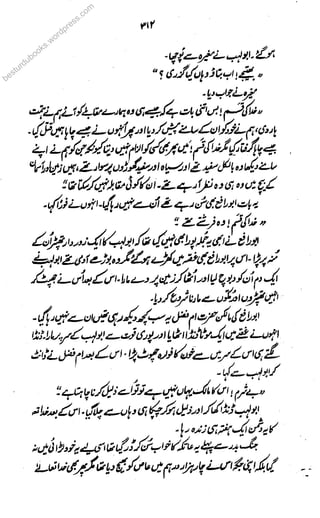 besturdubooks.wordpress.com
۳۱۲
ہو گئے۔ ابو لہب نے مغیرہ سے پوچھا۔
"بھتیجے! اب بتاؤ وہاں کیا گزری؟"
مغیرہ نے جواب دیا۔
"خدا کی قسم! بس اتنی بات ہے کہ جیسے ہی وہ ہمارے مقابلے کو آئے ہم نے ہمت
ہار دی، ہم نے خود کو ان کے سامنے پیش کر دیا اور پھر انہوں نے جسے چاہا ہمیں قتل کیا۔
جسے چاہا گرفتار کیا مگر خدا کی قسم! میں پھر بھی کسی کو الزام نہیں دیتا کیونکہ جن کو ہم نے اپنے
سامنے دیکھا وہ بالکل سفید تھے اور سیاہ اور سفید گھوڑوں پر سوار تھے، ہمیں زمین اور آسمان
کے بیچ میں وہ ہی وہ نظر آ رہے تھے۔ ان کا کوئی مقابلہ نہیں کر سکتا تھا"
یہ بات ابو رافع بھی سن رہے تھے ان سے نہیں رہا گیا۔ انہوں نے فوراً کہا۔
"خدا کی قسم! وہ فرشتے تھے"
ابو رافع نے ابھی یہ جملہ پورا بھی نہیں کیا تھا کہ ابو لہب کا ایک زور دار تھپڑ ان کے
منہ پر پڑا۔ اس پر ابو رافع بھی غصہ میں کھڑے ہو گئے مگر وہ بوڑھے آدمی تھے ابو لہب نے
ایک دم ان کو دبوچ لیا اور اٹھا کر زمین پر دے مارا۔ اس کے بعد اس نے جھپٹ کر
انہیں تھپڑوں اور مکوں سے مارنا شروع کر دیا۔
ابو رافع کی مالکن حضرت ام فضل یہ سب کچھ دیکھ رہی تھیں ان سے نہیں رہا گیا۔
انہوں نے غصے میں ایک موٹا ڈنڈا اٹھایا اور پوری قوت سے ابو لہب کے سر پر مارا، ڈنڈا
لگتے ہی اس کے سر میں سے خون کا فوارہ چھوٹ پڑا۔ اس کے بعد ام فضل نے ڈانٹ
کر ابو لہب سے کہا۔
"بے شرم! اس کا مالک یہاں نہیں ہے تو تو اسے ذلیل کرنا چاہتا ہے"
ابو لہب ڈنڈا کھا کر اور ذلیل ہو کر چپکا ہی وہاں سے چلا گیا۔ اس کے بعد خدا تعالیٰ
کا یہ دشمن ایک ہفتہ ہی زندہ رہا۔
جنگ بدر سے پہلے یہ عاتکہ کا خواب سن کر ڈر گیا تھا اسی لیے یہ خود لڑائی میں نہ
گیا بلکہ اپنی جگہ اس نے چار ہزار درہم میں عاص کو بھیج دیا تھا مگر پھر بھی خدا تعالےٰ